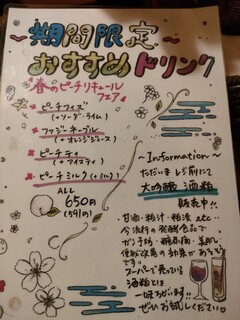 ~期間限定~
おすすめドリンク
春のピーチリキュール
フェア
ピーチフィズ
(+ソーダ・ライム)
ファジーネーブル
(+オレンジジュース)
ピーチティ
(+アイスティ)
ピーチミルク(+ミルク)
ALL
650円
(591円)
~Information~
ただいま レジ前にて
大吟醸 酒粕
販売中!!
甘酒・粕汁・粕漬 etc…
今流行の発酵食品で
ガン予防・糖尿病・美肌
便秘改善の効果がありそう
です。
スーパーで売っている
酒粕とは
一味ちがいます!!
ぜひお試しください